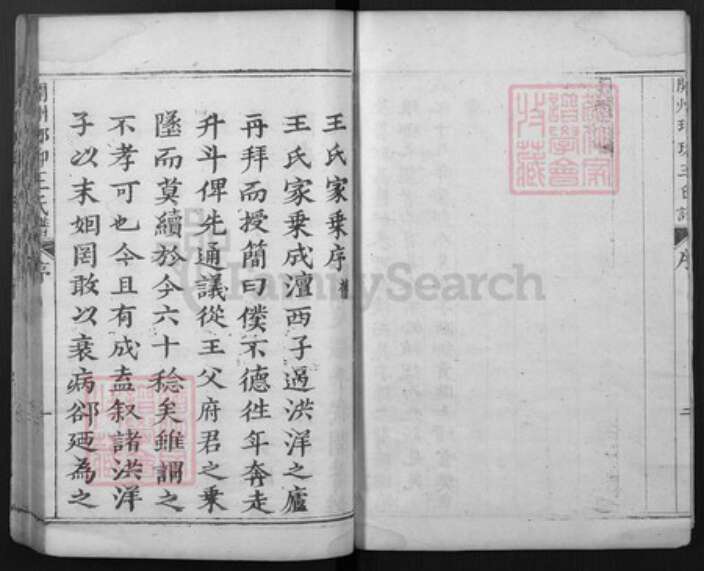 王氏家乗序 舊
王氏家乗成澶西子過洪洋之廬
再拜而授簡曰僕不德往年奔走
升斗俾先通議從王父府君之乗
墜而莫續於今六十稔矣雖謂之
不孝可也今且有成盍叙諸洪洋
子以末姻罔敢以衰病郤廼為之
序
一
序
收藏
譜學會
FamilySearch